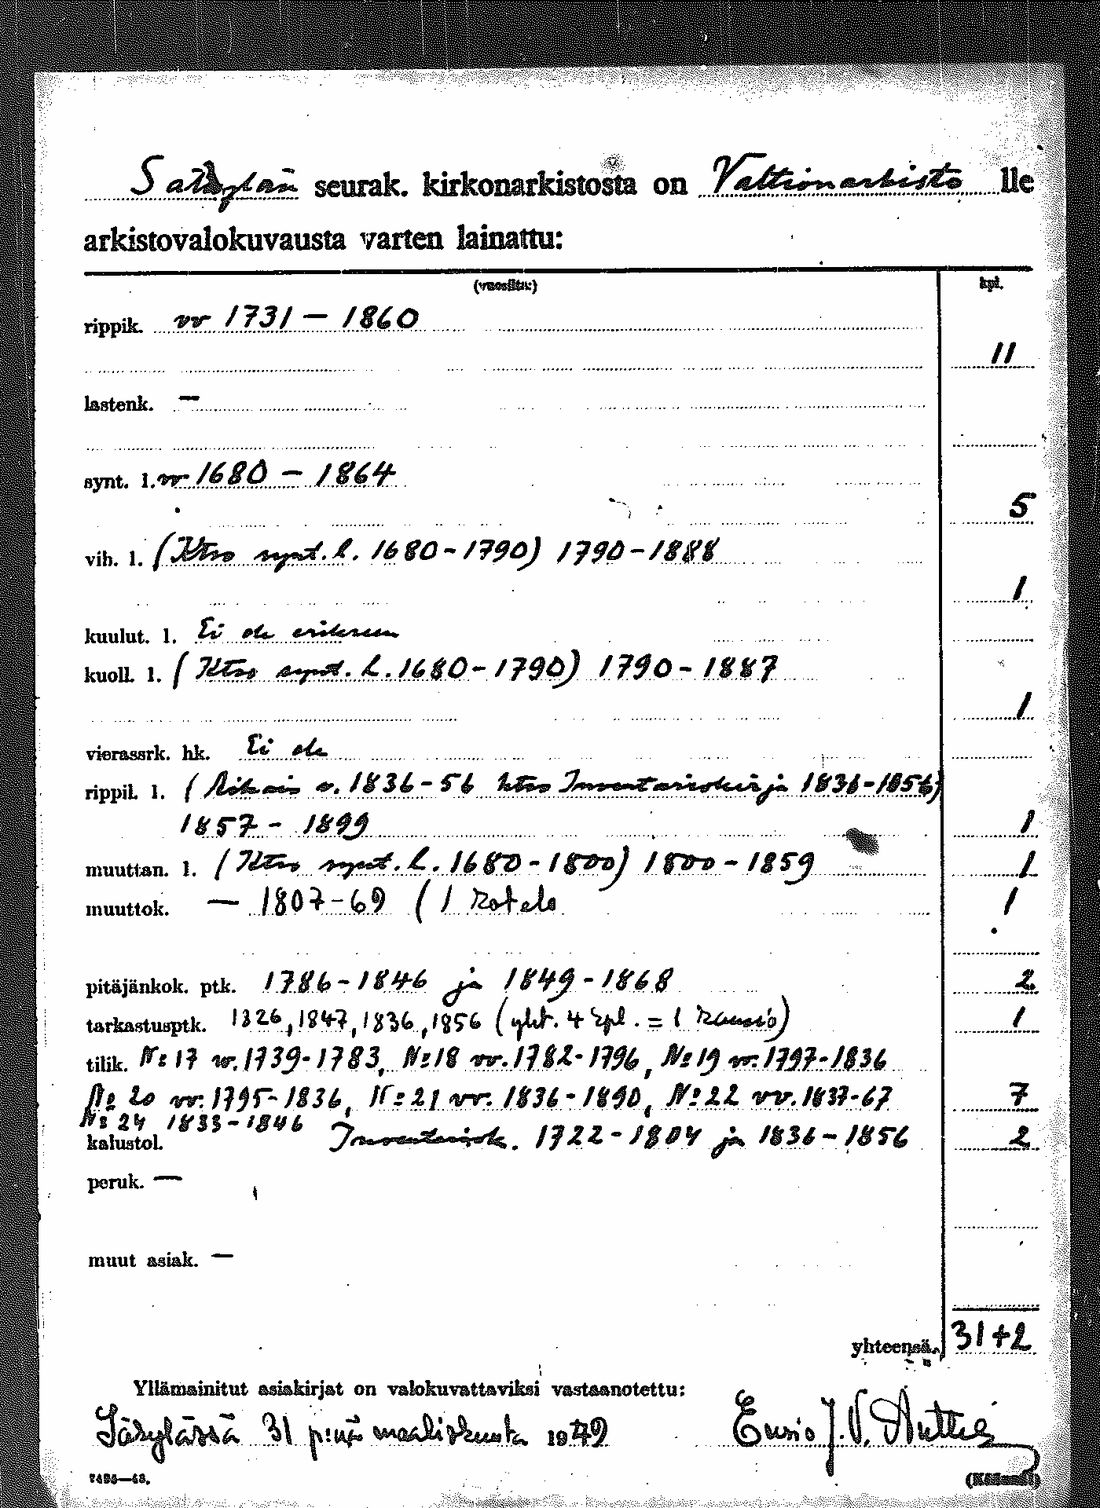 Säkylän seurak. kirkonarkistosta on Valtionarkisto lle
arkistovalokuvausta varten lainattu:
(vuosilta:) kpl.
rippik. vv 1731 – 1860
11
lastenk. —
synt. l. vv 1680 – 1864
5
vih. l. (Ktso synt. l. 1680-1790) 1790-1888
1
kuulut. l. Ei ole erikseen
kuoll. l. (Ktso synt. l. 1680-1790) 1790-1887
1
vierassrk. hk. Ei ole
rippil. l. ( v. 1836-56 ktso Inventariokirja 1836-1856)
1857 - 1899 1
muuttan. l. (Ktso synt. l. 1680-1800) 1800-1859 1
muuttok. — 1807-69 (1 kotelo 1
pitäjänkok. ptk. 1786-1846 ja 1849-1868 2
tarkastusptk. 1826, 1847, 1836, 1856 (yht. 4 kpl. = 1 kansio) 1
tilik. № 17 vv. 1739-1783, № 18 vv. 1782-1796, № 19 vv. 1797-1836
№ 20 vv. 1795-1836, № 21 vv. 1836-1890, № 22 vv. 1837-67 7
№ 24 1833-1846
kalustol. Inventariok. 1722-1804 ja 1836-1856 2
peruk. —
muut asiak. —
yhteensä 31+2
Yllämainitut asiakirjat on valokuvattaviksi vastaanotettu:
Säkylässä 31 p:nä maaliskuuta 1949 Eunio J. V. Anttila
7495—48.